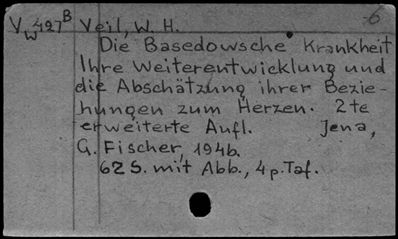 6
V_W 427^B Veil, W. H.
Die Basedowsche Krankheit
Ihre Weiterentwicklung und
die Abschätzung ihrer Bezie-
hungen zum Herzen. 2te
erweiterte Aufl. Jena,
G. Fischer, 1946.
62 S. mit Abb., 4 p. Taf.